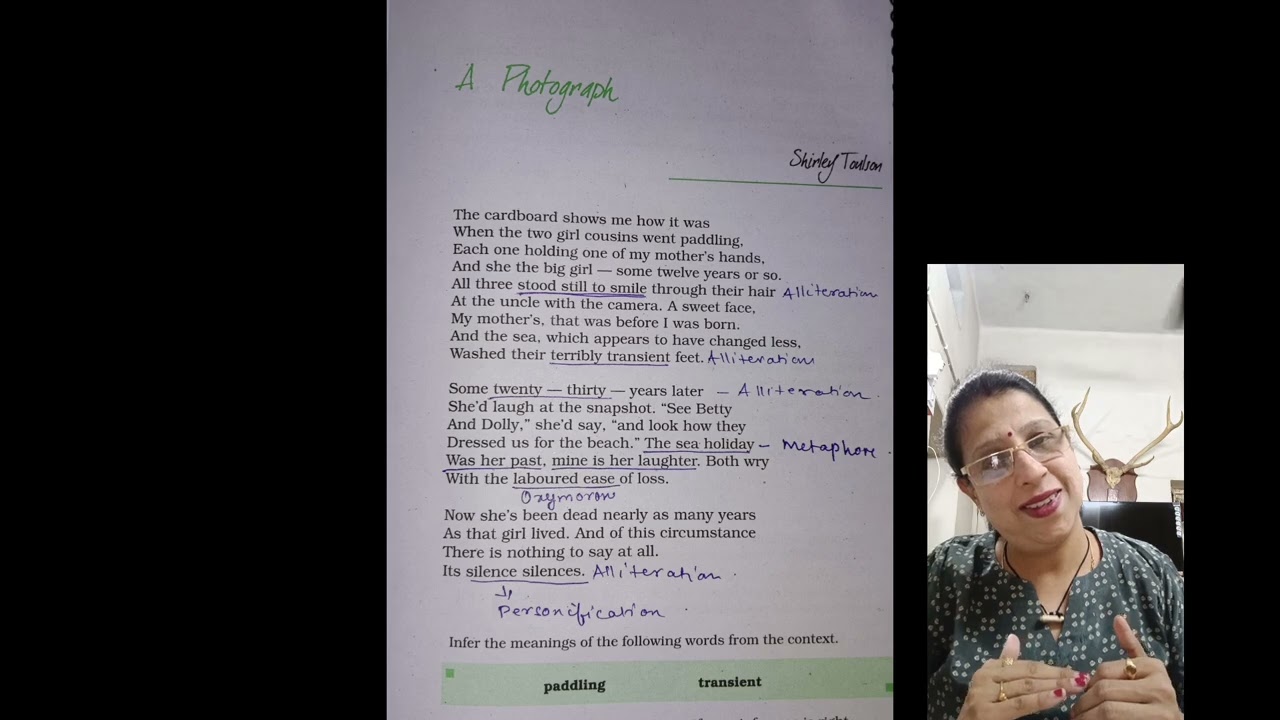 A Photograph
Shirley Toulson
The cardboard shows me how it was
When the two girl cousins went paddling,
Each one holding one of my mother's hands,
And she the big girl — some twelve years or so.
All three stood still to smile through their hair Alliteration
At the uncle with the camera. A sweet face,
My mother's, that was before I was born.
And the sea, which appears to have changed less,
Washed their terribly transient feet. Alliteration
Some twenty — thirty — years later – Alliteration.
She'd laugh at the snapshot. “See Betty
And Dolly,” she'd say, “and look how they
Dressed us for the beach.” The sea holiday – Metaphore.
Was her past, mine is her laughter. Both wry
With the laboured ease of loss.
Oxymoron
Now she's been dead nearly as many years
As that girl lived. And of this circumstance
There is nothing to say at all.
Its silence silences. Alliteration.
Personification
Infer the meanings of the following words from the context.
paddling transient